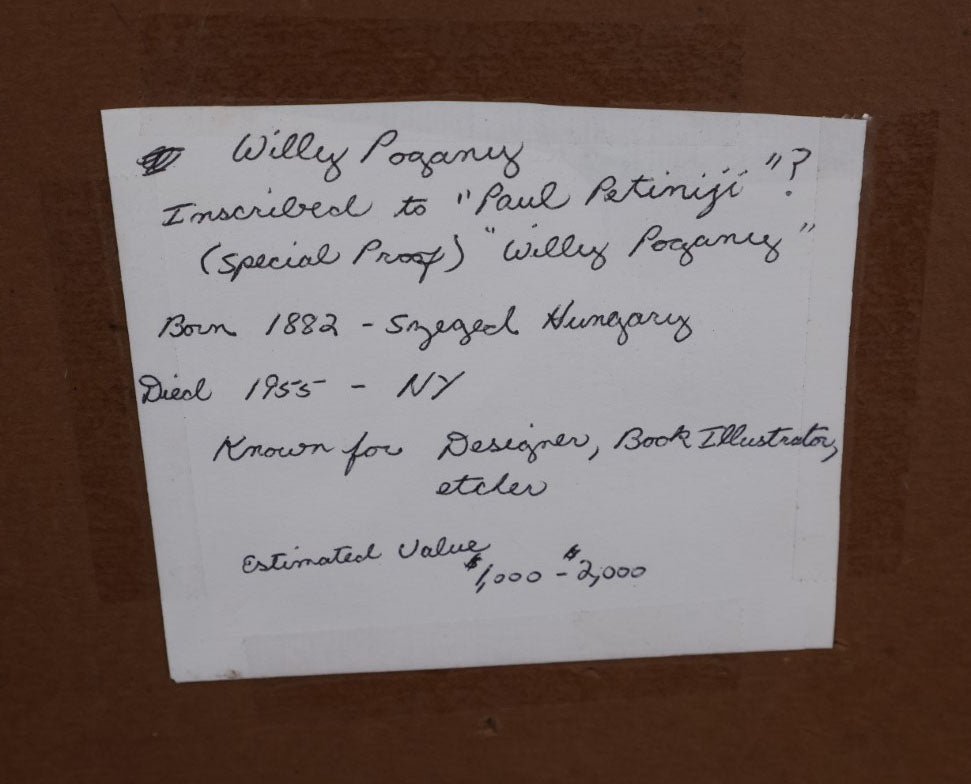 Willy Pogany
Inscribed to "Paul Petiniji"?
(Special Proof) "Willy Pogany"
Born 1882 - Szeged Hungary
Died 1955 - NY
Known for Designer, Book Illustrator,
etcher
Estimated Value
$1,000 - $2,000